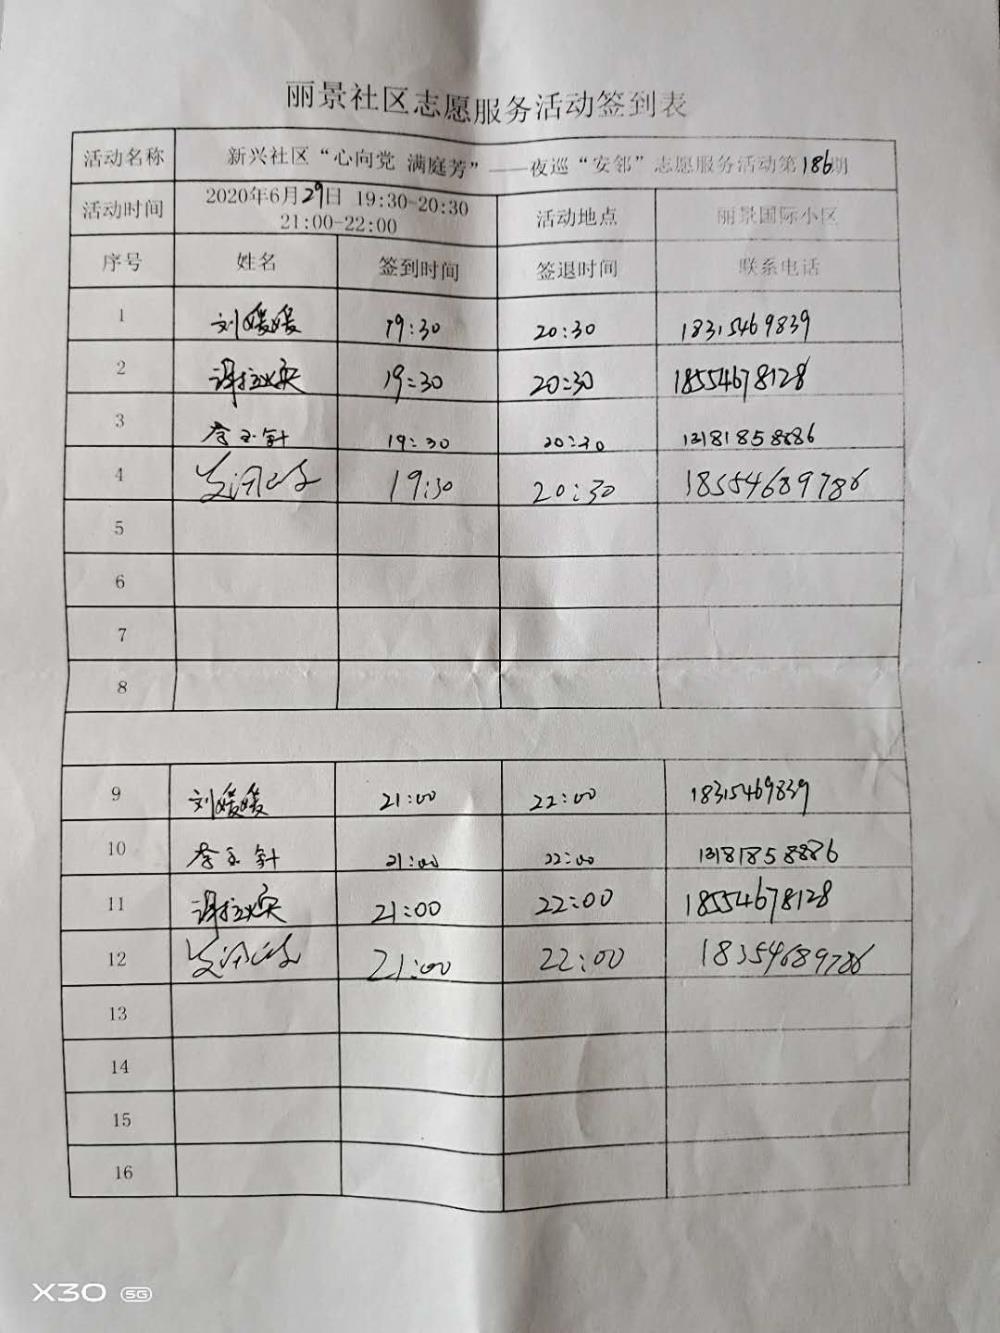 丽景社区志愿服务活动签到表
活动名称 新兴社区“心向党 满庭芳”——夜巡“安邻”志愿服务活动第186期
活动时间 2020年6月29日 19:30-20:30 活动地点 丽景国际小区
21:00-22:00
序号 姓名 签到时间 签退时间 联系电话
1 刘媛媛 19:30 20:30 18315469839
2 19:30 20:30 18554678128
3 19:30 20:30 13181858886
4 19:30 20:30 18554689786
5
6
7
8
9 刘媛媛 21:00 22:00 18315469839
10 21:00 22:00 13181858886
11 21:00 22:00 18554678128
12 21:00 22:00 18354689786
13
14
15
16
X30 5G